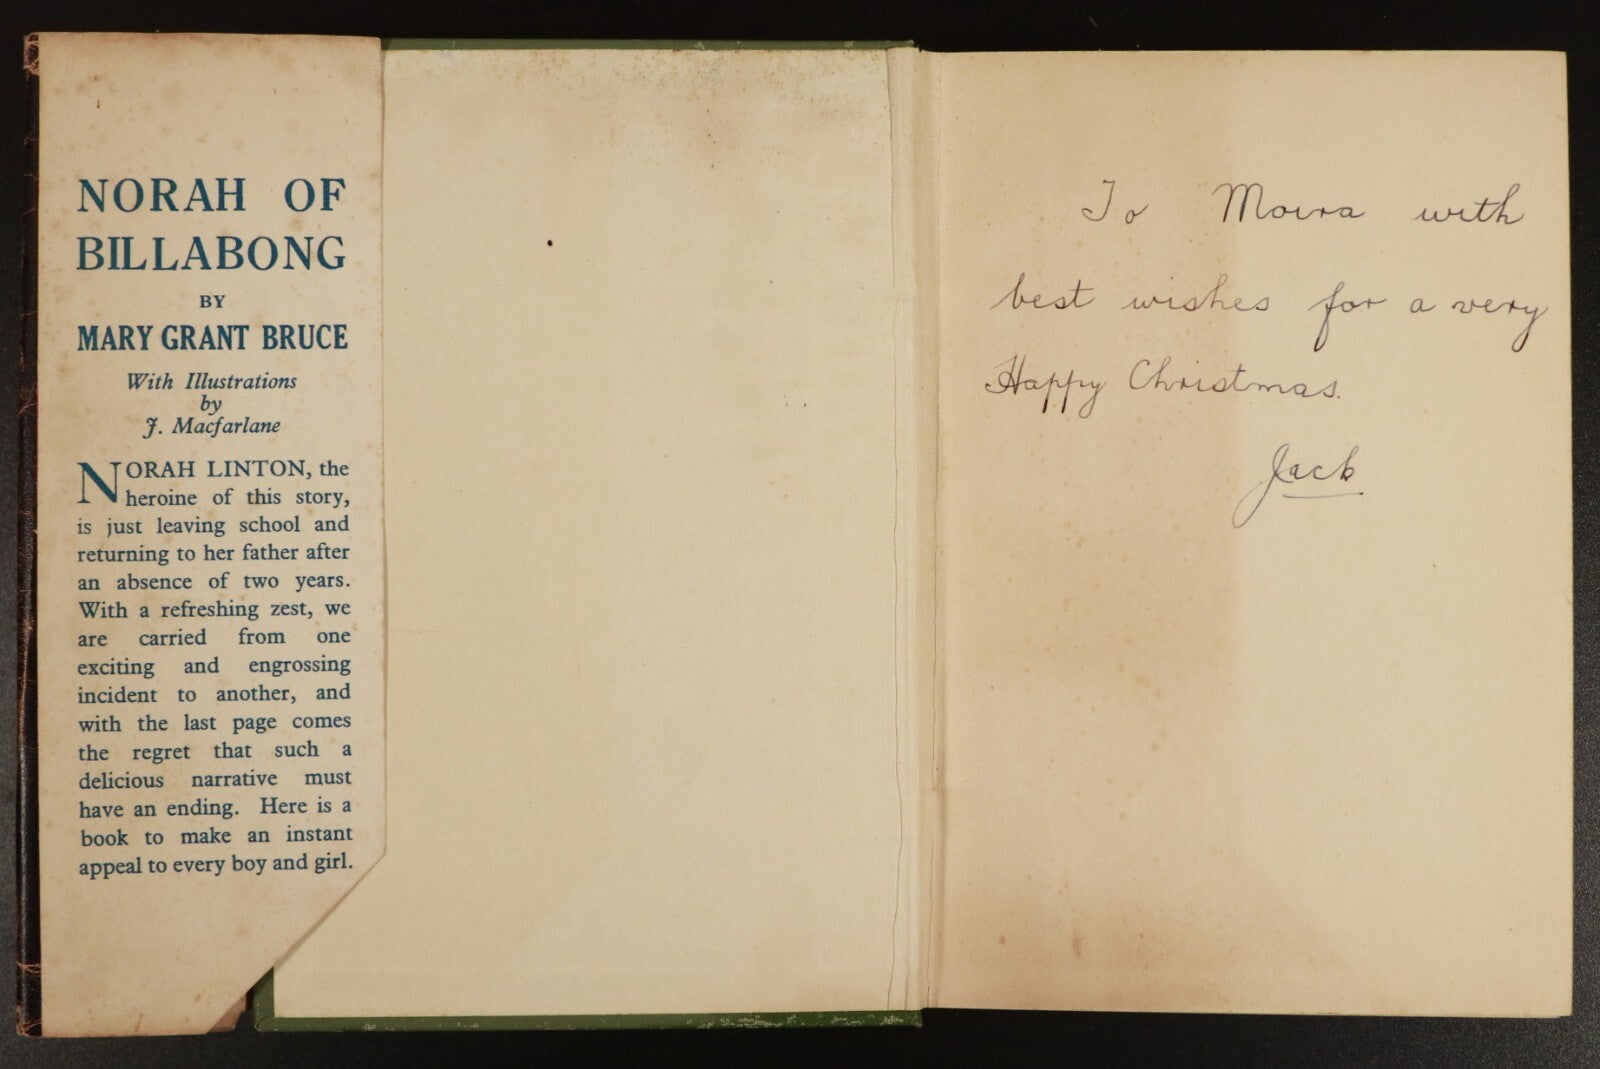 NORAH OF
BILLABONG
BY
MARY GRANT BRUCE
With Illustrations
by
J. Macfarlane
NORAH LINTON, the
heroine of this story,
is just leaving school and
returning to her father after
an absence of two years.
With a refreshing zest, we
are carried from one
exciting and engrossing
incident to another, and
with the last page comes
the regret that such a
delicious narrative must
have an ending. Here is a
book to make an instant
appeal to every boy and girl.
To Moira with
best wishes for a very
Happy Christmas.
Jack